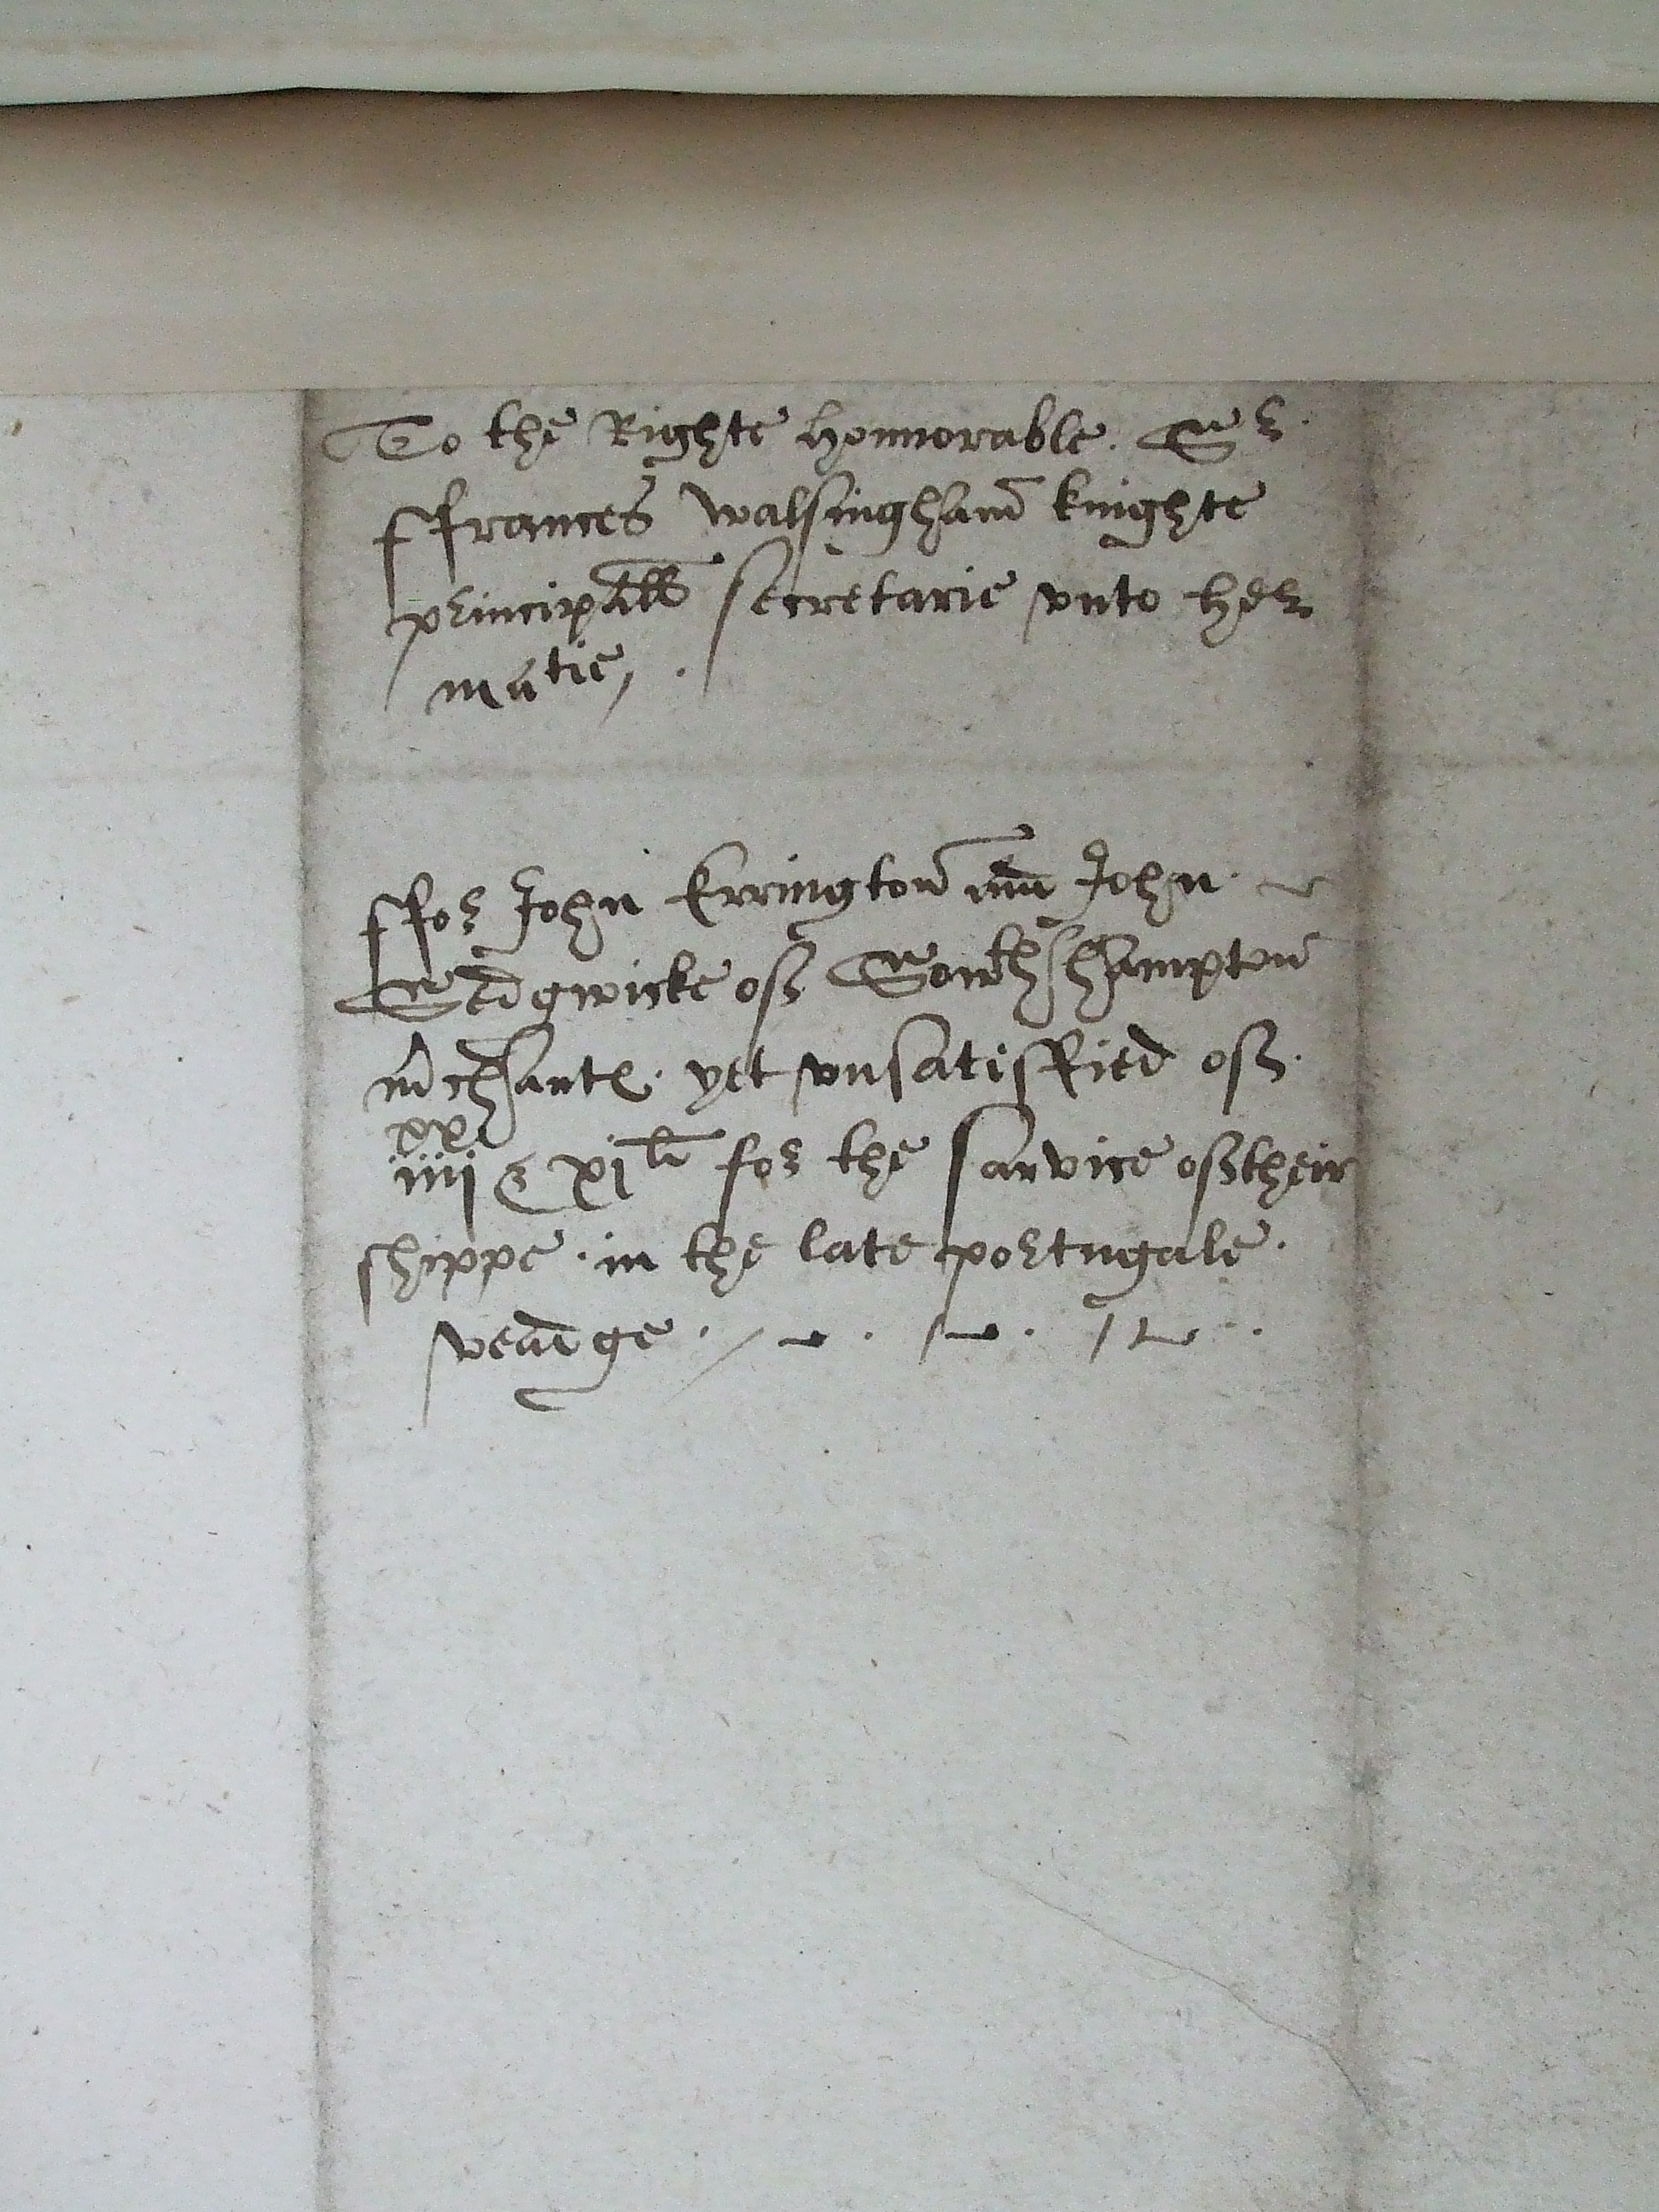 To the Righte honnorable. Sr.
ffrances walsingham knighte
principall secretarie vnto her
matie, .
ffor John Erringtou John
Sedgwicke of Southhampton
mchante. yet vnsatisffied of.
xx
iiij & xjli for the sarvice oftheir
shippe. in the late portugale.
veadge.